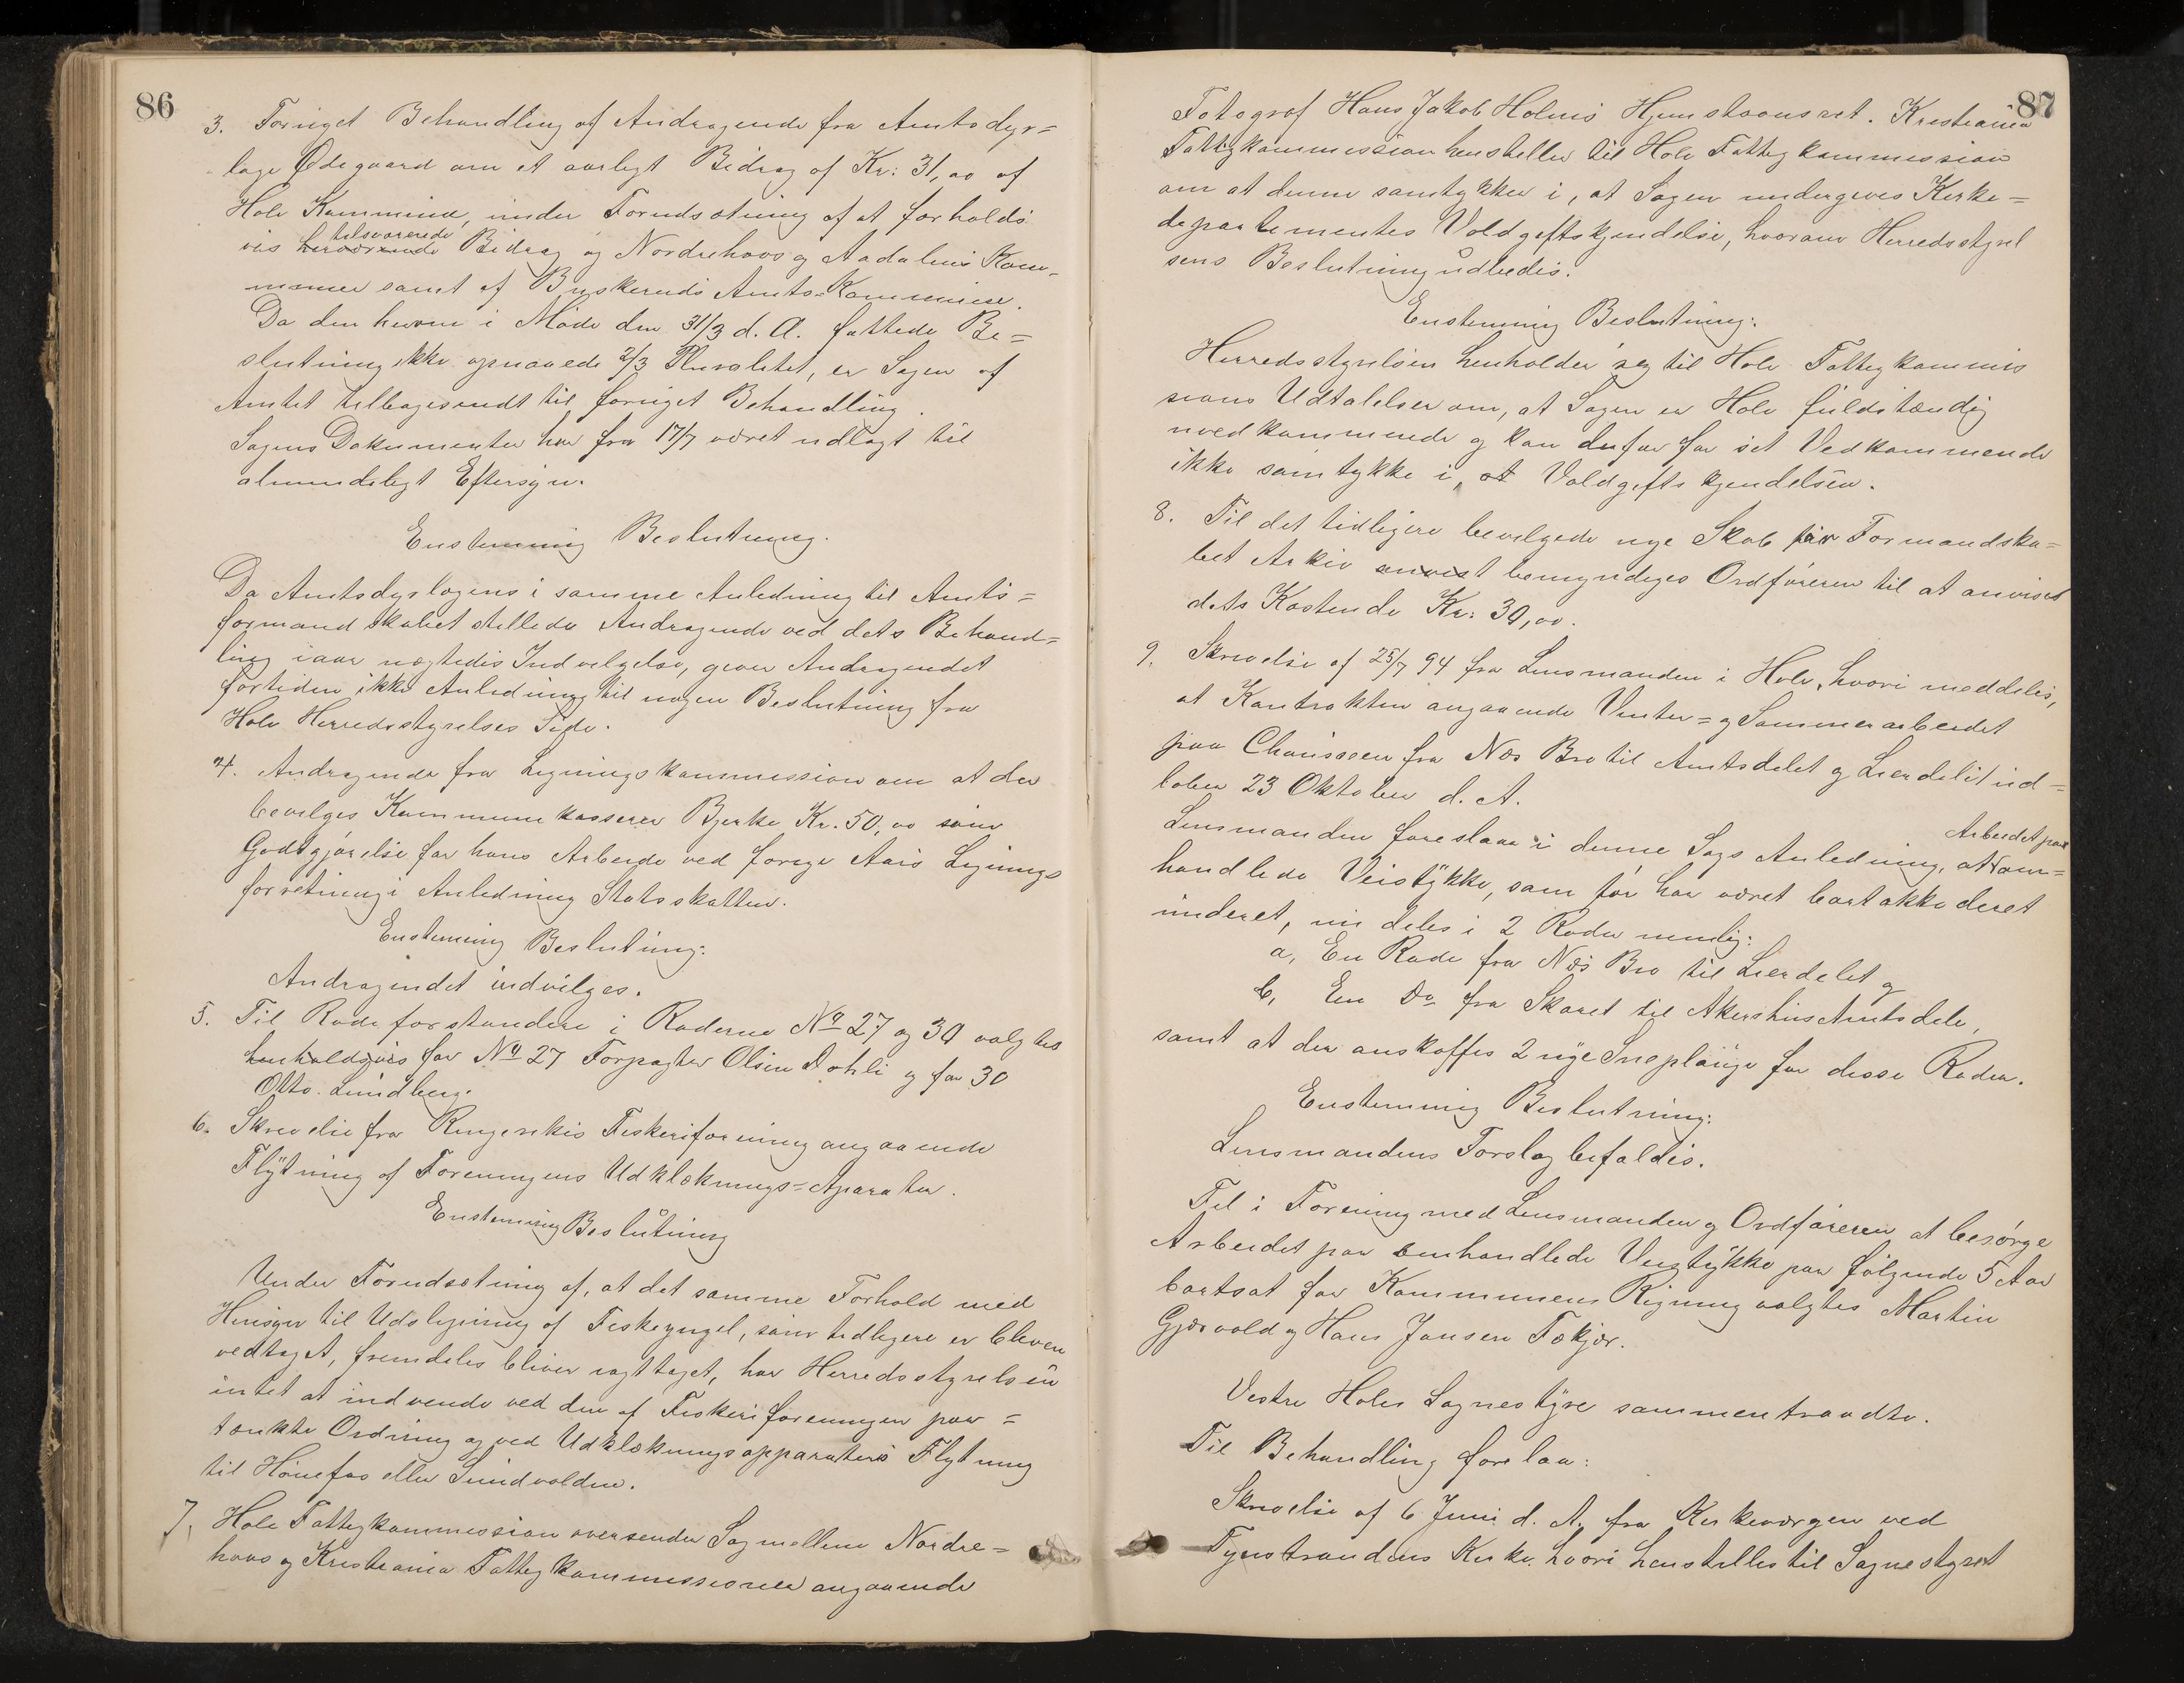 86
3. Fornyet Behandling af Andragende fra Amtsdyr=
læge Ødegaard om et aarligt Bidrag af Kr: 31,00 af
Hole Kommune, under Forudsætning af at forholds
vis herværende tilsvarende Bidrag og Norderhovs og Aadalens Kom-
muner samt af Buskeruds Amts=Kommune.
Da den herom i Møde den 31/3 d. A. fattede Be=
slutning ikke opnaaede 2/3 Pluralitet, er Sagen af
Amtet tilbagesendt til fornyet Behandling.
Sagens Dokumenter har fra 17/7 været udlagt til
almindeligt Eftersyn.
Enstemmig Beslutning.
Da Amtsdyrlægens i samme Anledning til Amts=
formandskabet stillede Andragende ved dets Behand=
ling iaar nægtedes Indvilgelse, giver Andragendet
fortiden ikke Anledning til nogen Beslutning fra
Hole Herredsstyrelses Side.
4. Andragende fra Ligningskommission om at der
bevilges Kommunekasserer Bjerke Kr. 50,00 som
Godtgjørelse for hans Arbeide ved forrige Aars Lignings
forretning i Anledning Statsskatten.
Enstemmig Beslutning:
Andragendet indvilges.
5. Til Rodeforstandere i Roderne No 27 og 30 valgtes
henholdsvis for No 27 Forpagter Olsen Dohli og for 30
Otto Lundberg.
6. Skrivelse fra Ringerikes Fiskeriforening angaaende
Flytning af Foreningens Udklæknings=Aparater.
Enstemmig Beslutning
Under Forudsætning af, at det samme Forhold med
Hensyn til Udsligning af Fiskeyngel, som tidligere er bleven
vedtaget, fremdeles bliver iagttaget, har Herredsstyrelsen
intet at indvende ved den af Fiskeriforeningen paa=
tænkte Ordning og ved Udklækningsapparaters Flytning
til Hønefos eller Sundvolden.
7. Hole Fattigkommission oversender Sag mellem Norder=
hovs og Kristiania Fattigkommissioner angaaende
87
Fotograf Hans Jakob Holms Hjemstavnsret. Kristiania
Fattigkommission henstiller til Hole Fattigkommission
om at denne samtykker i, at Sagen undergives Kirke=
departementets Voldgiftskjendelse, hvorom Herredsstyrel
sens Beslutning udbedes.
Enstemmig Beslutning:
Herredsstyrelsen henholder seg til Hole Fattigkommis
sions Udtalelser om, at Sagen er Hole fuldstændig
uvedkommende og kan derfor for sit Vedkommende
ikke samtykke i, at Voldgiftskjendelsen.
8. Til det tidligere bevilgede nye Skab for Formandska=
bet Arkiv anvist bemyndiges Ordføreren til at anvise
dets Kostende Kr: 30,00.
9. Skrivelse af 25/7 94 fra Lensmanden i Hole, hvori meddeles,
at Kontrakten angaaende Vinter= og Sommerarbeidet
paa Chausseen fra Næs Bro til Amtsdelet og Lierdelet ud=
løber 23 Oktober d. A.
Lensmanden foreslaar i denne Sags Anledning, at Arbeidet paa om=
handlede Veistykke, som før har været bortakkorderet
underet, nu deles i 2 Roder nemlig:
a, En Rode fra Næs Bro til Lierdelet og
b, En Do fra Skaret til Akershus Amtsdele,
samt at der anskaffes 2 nye Sneplouge for disse Roder.
Enstemmig Beslutning:
Lensmandens Forslag bifaldes.
Til i Forening med Lensmanden og Ordføreren at besørge
Arbeidet paa omhandlede Veistykke paa følgende 5 Aar
bortsat for Kommunens Regning valgtes Martin
Gjesvold og Hans Jansen Fekjær.
Vestre Holes Sognestyre sammentraadte.
Til Behandling forelaa:
Skrivelse af 6 Juni d. A. fra Kirkeværgen ved
Tyristrandens Kirke, hvori henstilles til Sognestyret